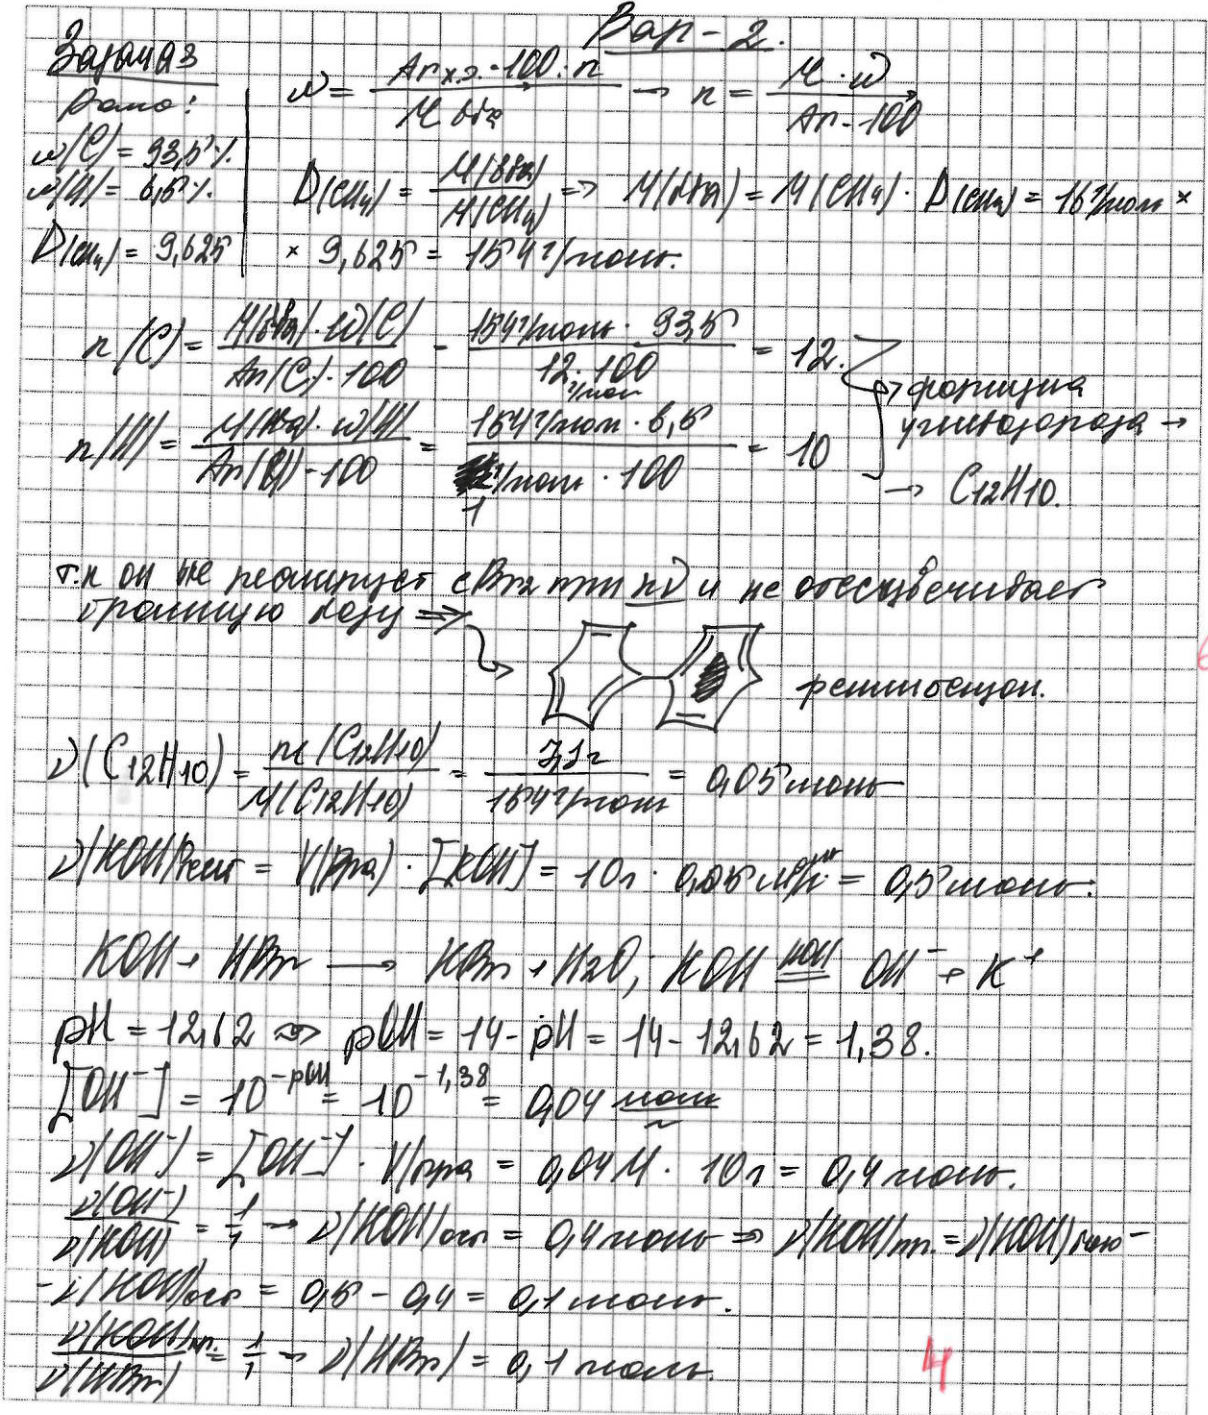 Вар-2.
Задача 3
Дано:
ω = Ar х.э. · 100 · n / M в-ва → n = M · ω / Ar · 100
ω(C) = 93,5%
ω(H) = 6,5%
D(CH4) = 9,625
D(CH4) = M(в-ва) / M(CH4) => M(в-ва) = M(CH4) · D(CH4) = 16 г/моль ×
× 9,625 = 154 г/моль.
n(C) = M(в-ва) · ω(C) / Ar(C) · 100 = 154 г/моль · 93,5 / 12 г/моль · 100 = 12.
n(H) = M(в-ва) · ω(H) / Ar(H) · 100 = 154 г/моль · 6,5 / 1 г/моль · 100 = 10
→ формула
углеводорода →
→ C12H10.
т.к он не реагирует с Br2 при hν и не обесцвечивает
бромную воду =>
ν(C12H10) = m(C12H10) / M(C12H10) = 7,7 г / 154 г/моль = 0,05 моль
ν(KOH) = V(р-ра) · [KOH] = 10л · 0,05 = 0,5 моль.
KOH + HBr → KBr + H2O; KOH = OH⁻ + K⁺
pH = 12,62 => pOH = 14 - pH = 14 - 12,62 = 1,38.
[OH⁻] = 10^-pOH = 10^-1,38 = 0,04 моль/л
ν(OH⁻) = [OH⁻] · V р-ра = 0,04 М · 10л = 0,4 моль.
ν(OH⁻) / ν(KOH) = 1/1 → ν(KOH)ост = 0,4 моль => ν(KOH)пр. = ν(KOH) -
- ν(KOH)ост = 0,5 - 0,4 = 0,1 моль.
ν(KOH)пр. / ν(HBr) = 1/1 → ν(HBr) = 0,1 моль.
4